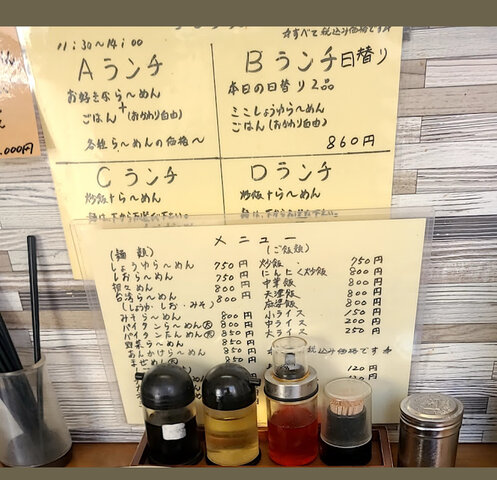 11:30〜14:00
※すべて税込み価格です※
Aランチ
お好きなら〜めん
+
ごはん(おかわり自由)
各種ら〜めんの価格〜
Bランチ日替り
本日の日替り2品
ミニしょうゆら〜めん
ごはん(おかわり自由)
860円
Cランチ
炒飯+ら〜めん
Dランチ
炒飯+ら〜めん
,000円
メニュー
(麺類)
しょうゆら〜めん 750円
しおら〜めん 750円
担々めん 800円
台湾ら〜めん 800円
(しょうゆ・しお・みそ)
みそら〜めん 800円
パイタンら〜めん 800円
パイタンたんめん 850円
野菜ら〜めん 850円
あんかけら〜めん 850円
まぜめん
(ご飯類)
炒飯 750円
にんにく炒飯 800円
中華飯 800円
天津飯 800円
麻婆飯 800円
小ライス 150円
中ライス 200円
大ライス 250円
税込み価格です
120円